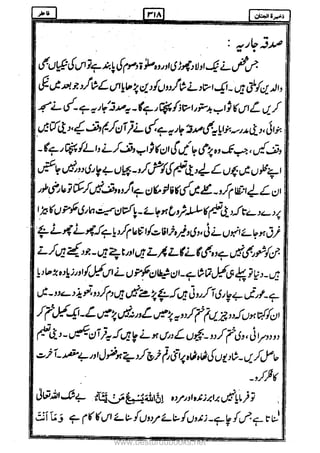 ذخیرۃ الجنان
۳۱۸
فاطر
صدقہ جاریہ :
جس شخص نے نیک اولاد چھوڑی اور وہ صلوٰۃ و صوم کی پابند ہے تو اس کی نیکیاں بھی
والدین کو ملتی ہیں۔ ایک استاد نے شاگردوں کو دین پڑھایا اس کے شاگرد جو بعد میں نیکی
کریں گے اس کا ثواب بدستور استاذ کو پہنچتا رہے گا۔ یہ صدقہ جاریہ ہے۔ کسی نے مسجد
بنوائی، دینی مدرسہ بنوایا یہ بھی صدقہ جاریہ ہے، کسی نے قرآن کریم وقف کیے، دینی کتابیں
وقف کیں، جب تک وہ پڑھی جائیں گی ان کا ثواب وقف کرنے والے کو پہنچتا رہے گا۔
اپنے محلوں میں بچوں کے لیے دینی تعلیم کی کوشش کرو۔ بچیاں بے چاری دور نہیں جا سکتیں
ان کے لیے انتظام کرو۔ محلے میں کسی کا فالتو مکان ہے اگر وہ وقف نہیں کر سکتا تو عارضی طور
پر دے دے تاکہ دینی تعلیم کا سلسلہ شروع ہو جائے۔ پاکستان سمیت ہماری حکومتوں کا بیڑا
غرق ہو جائے انہوں نے ٹی، وی وغیرہ خرافات کو اتنا عام کر دیا ہے کہ چھوٹے چھوٹے بچے
جن کو شعور بھی نہیں ہے وہ بھی گانے گاتے پھرتے ہیں اور ناچتے ہیں۔ جو دیکھتے ہیں کرتے
ہیں۔ دنیا تو پہلے ہی کھیل تماشا ہے۔ ان شیطان حکومتوں نے اس کھیل کو اور زیادہ بڑھا دیا
ہے۔ عورتیں بے چاری آ کر روتی ہیں کہ بچے پڑھتے نہیں ہیں دم کر دو، تعویذ دے دو۔ میں
ان کو کہتا ہوں کہ دو چیزیں تم ختم کر دو یہ پڑھیں گے ورنہ نہیں پڑھیں گے۔ ایک کھیل ختم کر
دو دوسرا ٹی، وی ختم کر دو۔ بچیوں کے درس ہونے چاہییں کہ یہ قرآن سیکھیں۔ دینی تعلیم
حاصل کریں۔ شادیوں کی ٹھاٹھ پر اتنی رقم خرچ کر دیتے ہو فضول اور بے مقصد۔ آخرت
کا فکر کرو۔
تو فرمایا نہیں برابر زندہ اور مردہ اِنَّ اللّٰهَ يُسْمِعُ مَنْ يَّشَآءُ بے شک اللہ تعالیٰ
سناتا ہے جس کو چاہے۔ زندوں کو سنائے مردوں کو سنائے اس کا کام ہے وَمَآ اَنْتَ
www.besturdubooks.net